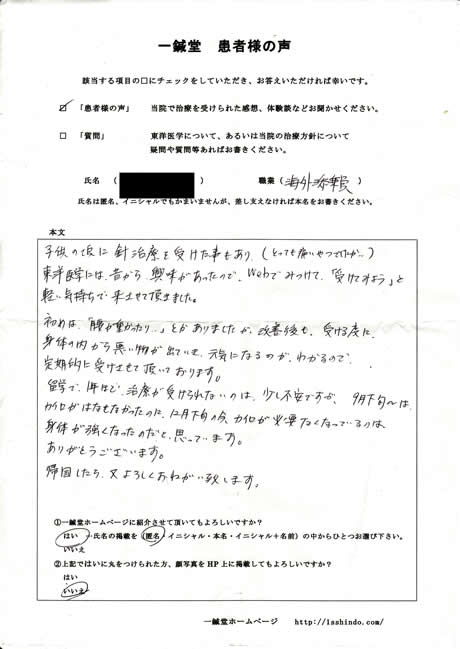 一鍼堂 患者様の声
該当する項目の□にチェックをしていただき、お答えいただければ幸いです。
☑ 「患者様の声」 当院で治療を受けられた感想、体験談などお聞かせください。
□ 「質問」 東洋医学について、あるいは当院の治療方針について
疑問や質問等あればお書きください。
氏名 ( ) 職業 (海外添乗員)
氏名は匿名、イニシャルでもかまいませんが、差し支えなければ本名をお書きください。
本文
子供の頃に針治療を受けた事もあり、(とっても痛いやつでしたが…)
東洋医学には、昔から興味があったので、Webでみつけて、「受けてみよう」と
軽い気持ちで来させて頂ました。
初めは、「腰が重かったり…」とかありましたが、改善後も、受ける度に、
身体の内から悪い物が出ていき、元気になるのが、わかるので、
定期的に受けさせて頂いております。
留学で、1年ほど、治療が受けられないのは、少し不安ですが、9月下旬〜は、
カイロがはなせなかったのに、12月下旬の今、カイロが必要なくなっているのは、
身体が強くなったのだと、思っています。
ありがとうございます。
帰国したら、又よろしくおねがい致します。
①一鍼堂ホームページに紹介させて頂いてもよろしいですか？
はい →氏名の掲載を(匿名・イニシャル・本名・イニシャル+名前)の中からひとつお選び下さい。
いいえ
②上記ではいに丸をつけられた方、顔写真をHP上に掲載してもよろしいですか？
はい
いいえ
一鍼堂ホームページ http://isshindo.com/